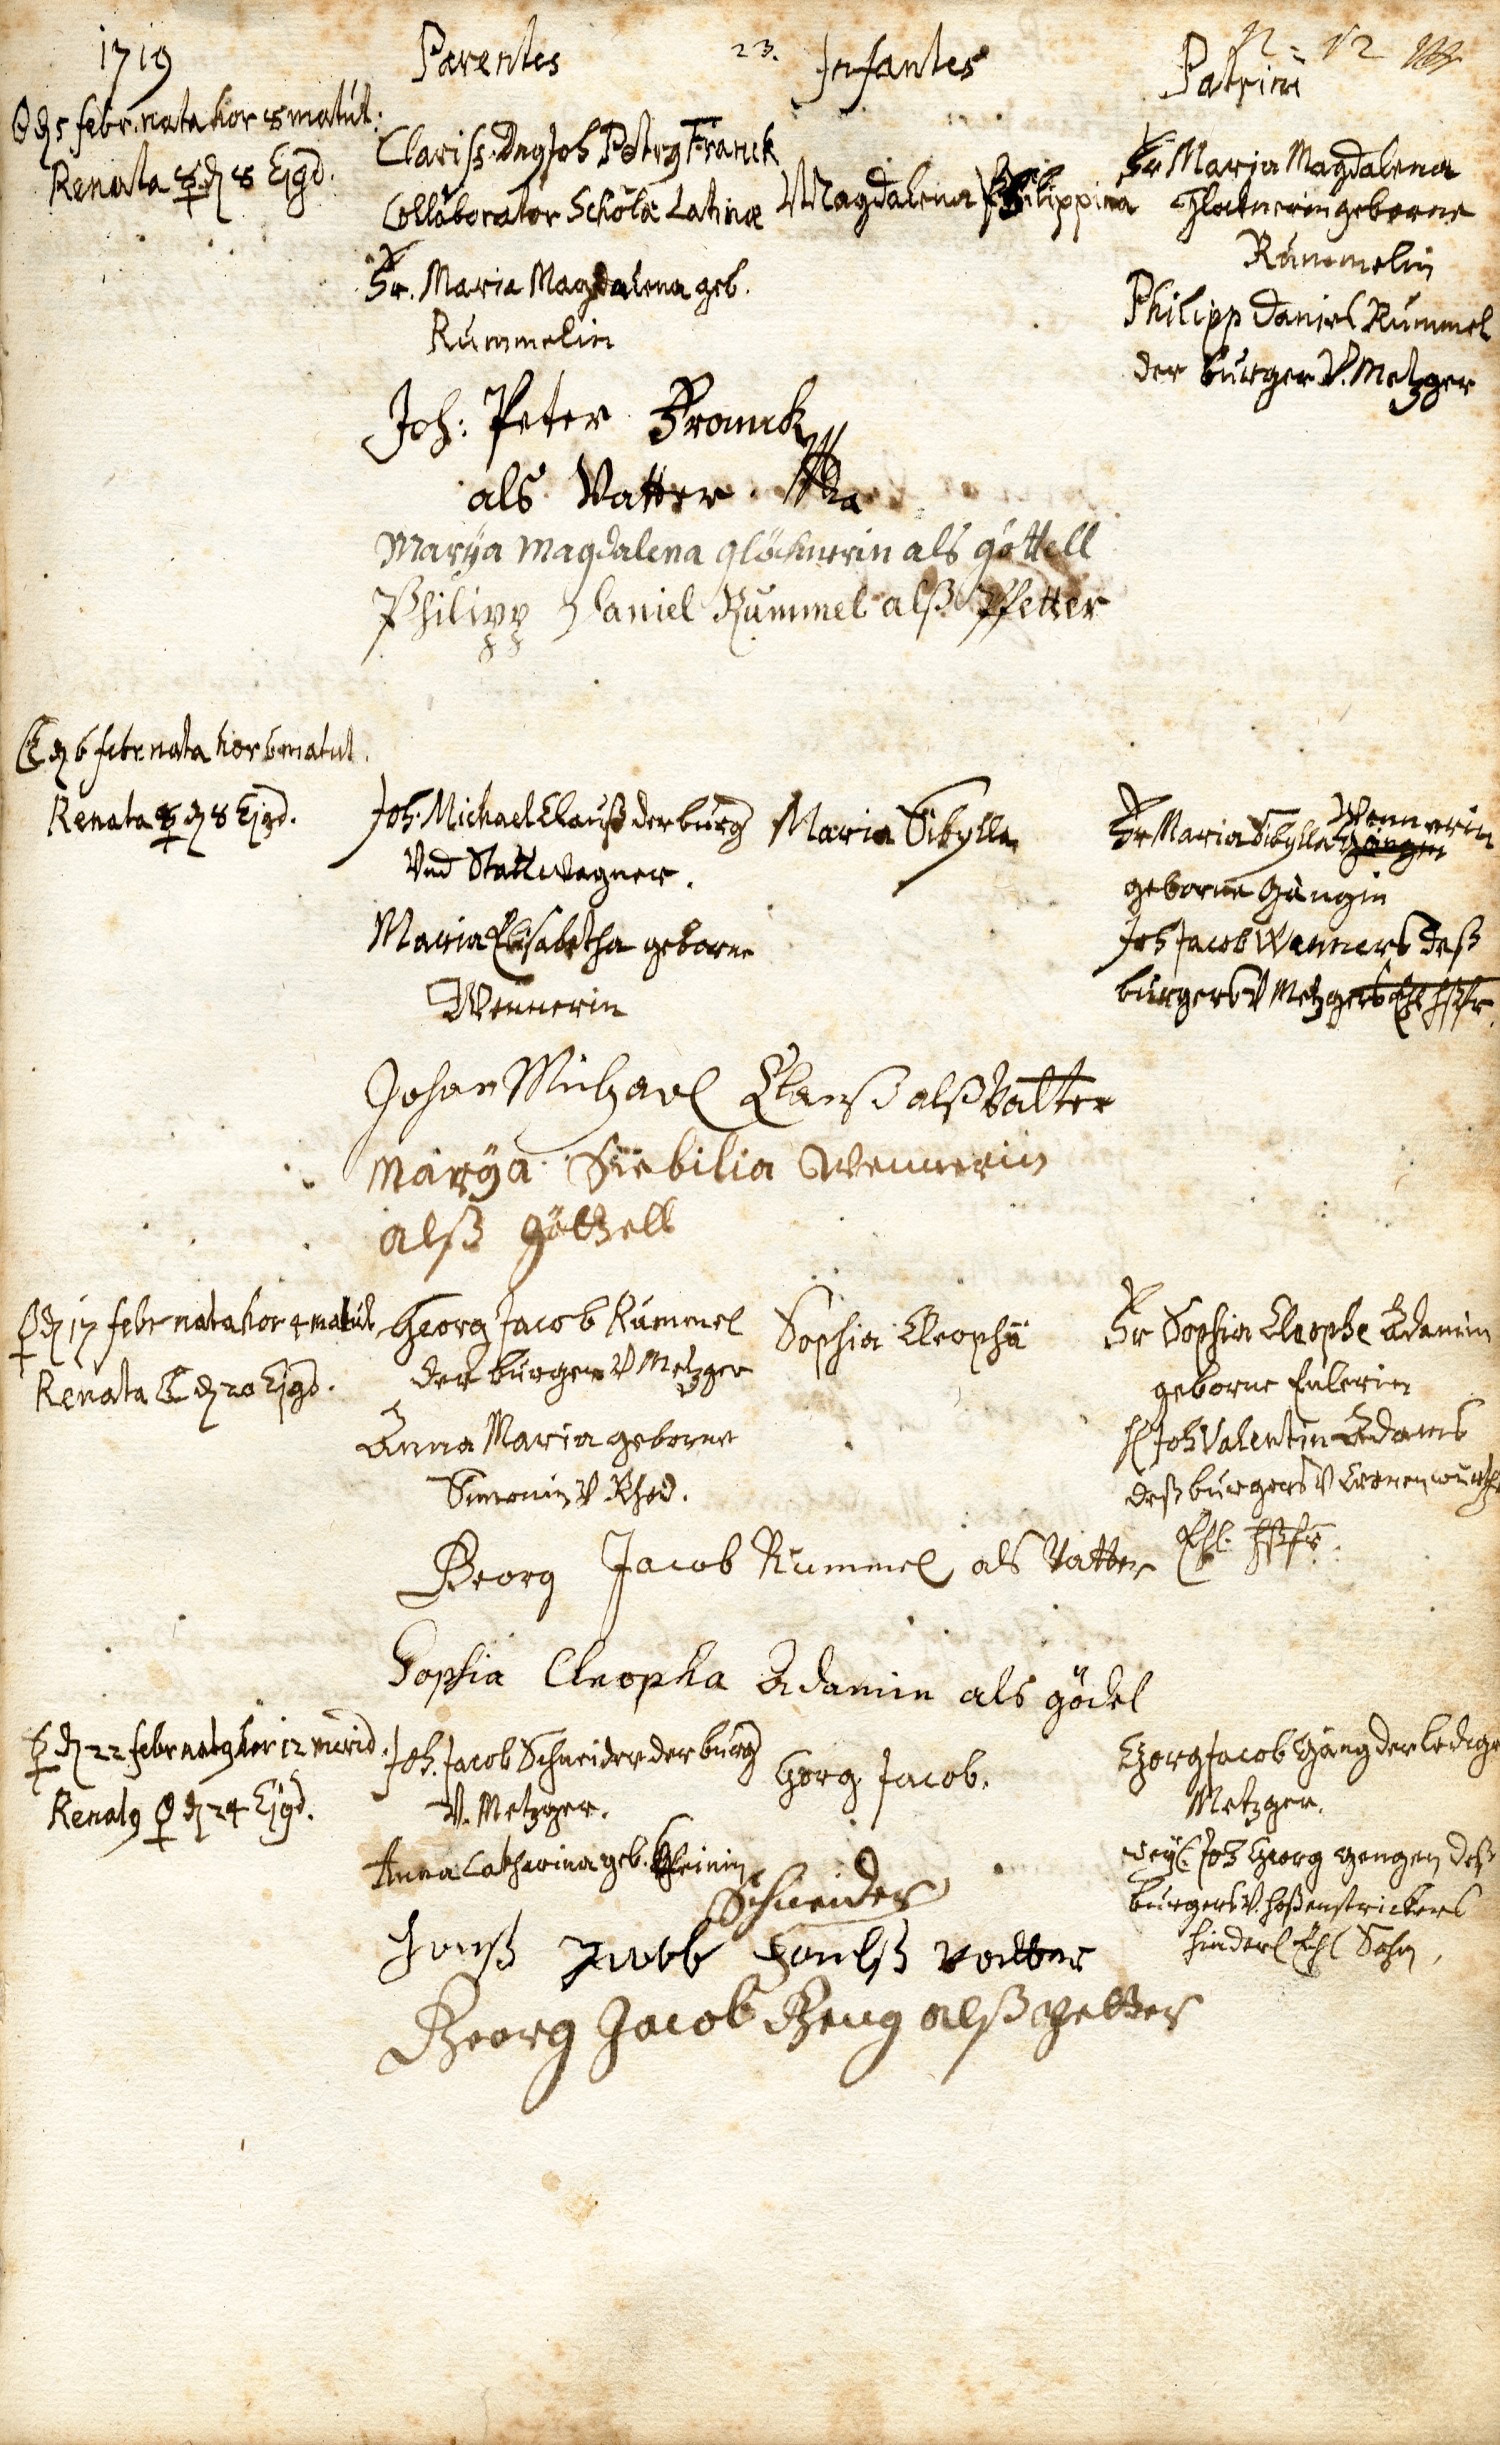 1719
Parentes
23.
Infantes
Patrini
n = 12
☉ d 5 febr. nata hor 8 matut:
Renata ☿ d 8 Ejgd.
Clariss. Dn9 Joh Petr9 Franck
Collaborator Scholæ Latinæ
Fr. Maria Magdalena geb.
Rummelin
Magdalena Philippina
Fr Maria Magdalena
geborne
Rummelin
Philipp Daniel Rummel
der burger V. Metzger
Joh: Peter Franck
als Vatter.
Marÿa Magdalena glöcknerin als göttell
Philipp Daniel Rummel alß Pfetter
☾ d 6 febr. nata hor 6 matut.
Renata ☿ d 8 Ejgd.
Joh. Michael Clauß der burg
Vnd Statt wagner.
Maria Elisabetha geborne
Wennerin
Maria Sibylla
Fr Maria Sibylla Wennerin
geborne Gängin
Joh Jacob Wenners deß
burgers V Metzgers Ehl Hßfr.
Johan Michael Clauß alß Vatter
Marÿa Siebilia Wennerin
alß göttell
♀ d 17 febr nata hor 4 matut
Renata ☾ d 20 Ejgd.
Georg Jacob Rummel
der burger V Metzger
Anna Maria geborne
Simonin V. Rhod.
Sophia Cleophä
Fr Sophia Cleophe Adamin
geborne Eulerin
H Joh Valentin Adams
deß burgers V Cronenwürths
Ehl. Hßfr.
Georg Jacob Rummel als Vatter
Sophia Cleopha Adamin als gödel
☿ d 22 febr nat9 hor 12 merid.
Renat9 ♀ d 24 Ejgd.
Joh. Jacob Schneider der burg
V. Metzger.
Anna Catharina geb. Kleinin
Georg Jacob.
Georg Jacob Gäng der ledige
Metzger.
weyl. Joh Georg Gengen deß
burgers V. hoßenstrickers
hinderl Ehl Sohn.
Schneider
Hanß Jacob vatter
Georg Jacob Geng alß Petter